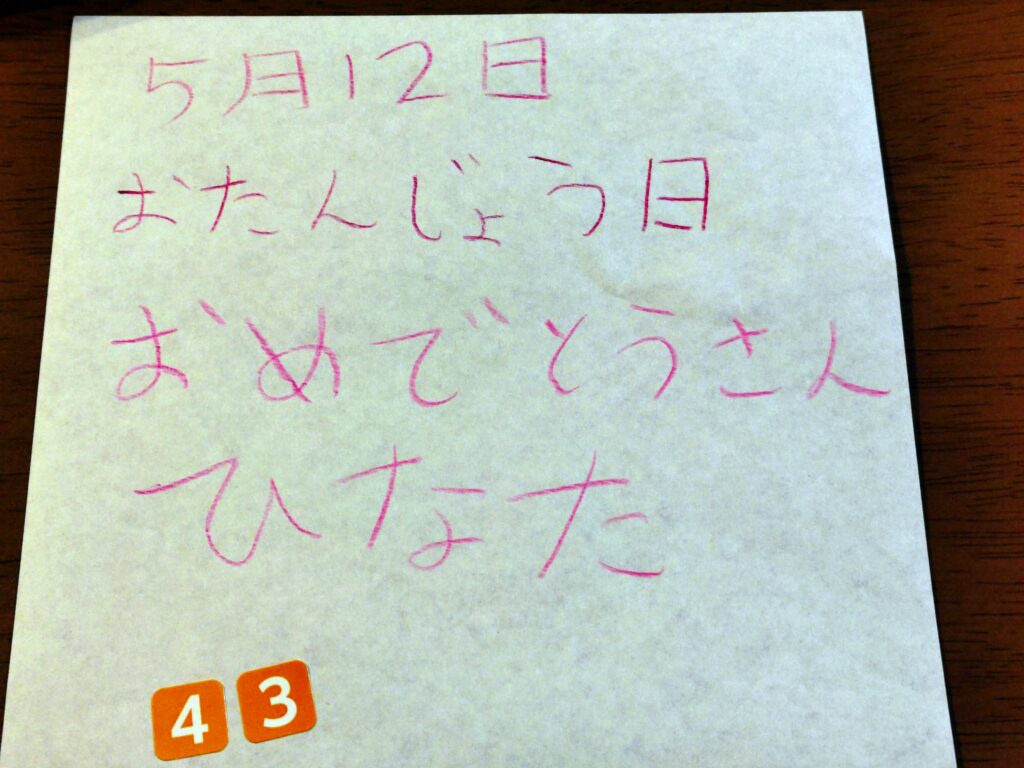 5月12日
おたんじょう日
おめでとうさん
ひなた
43